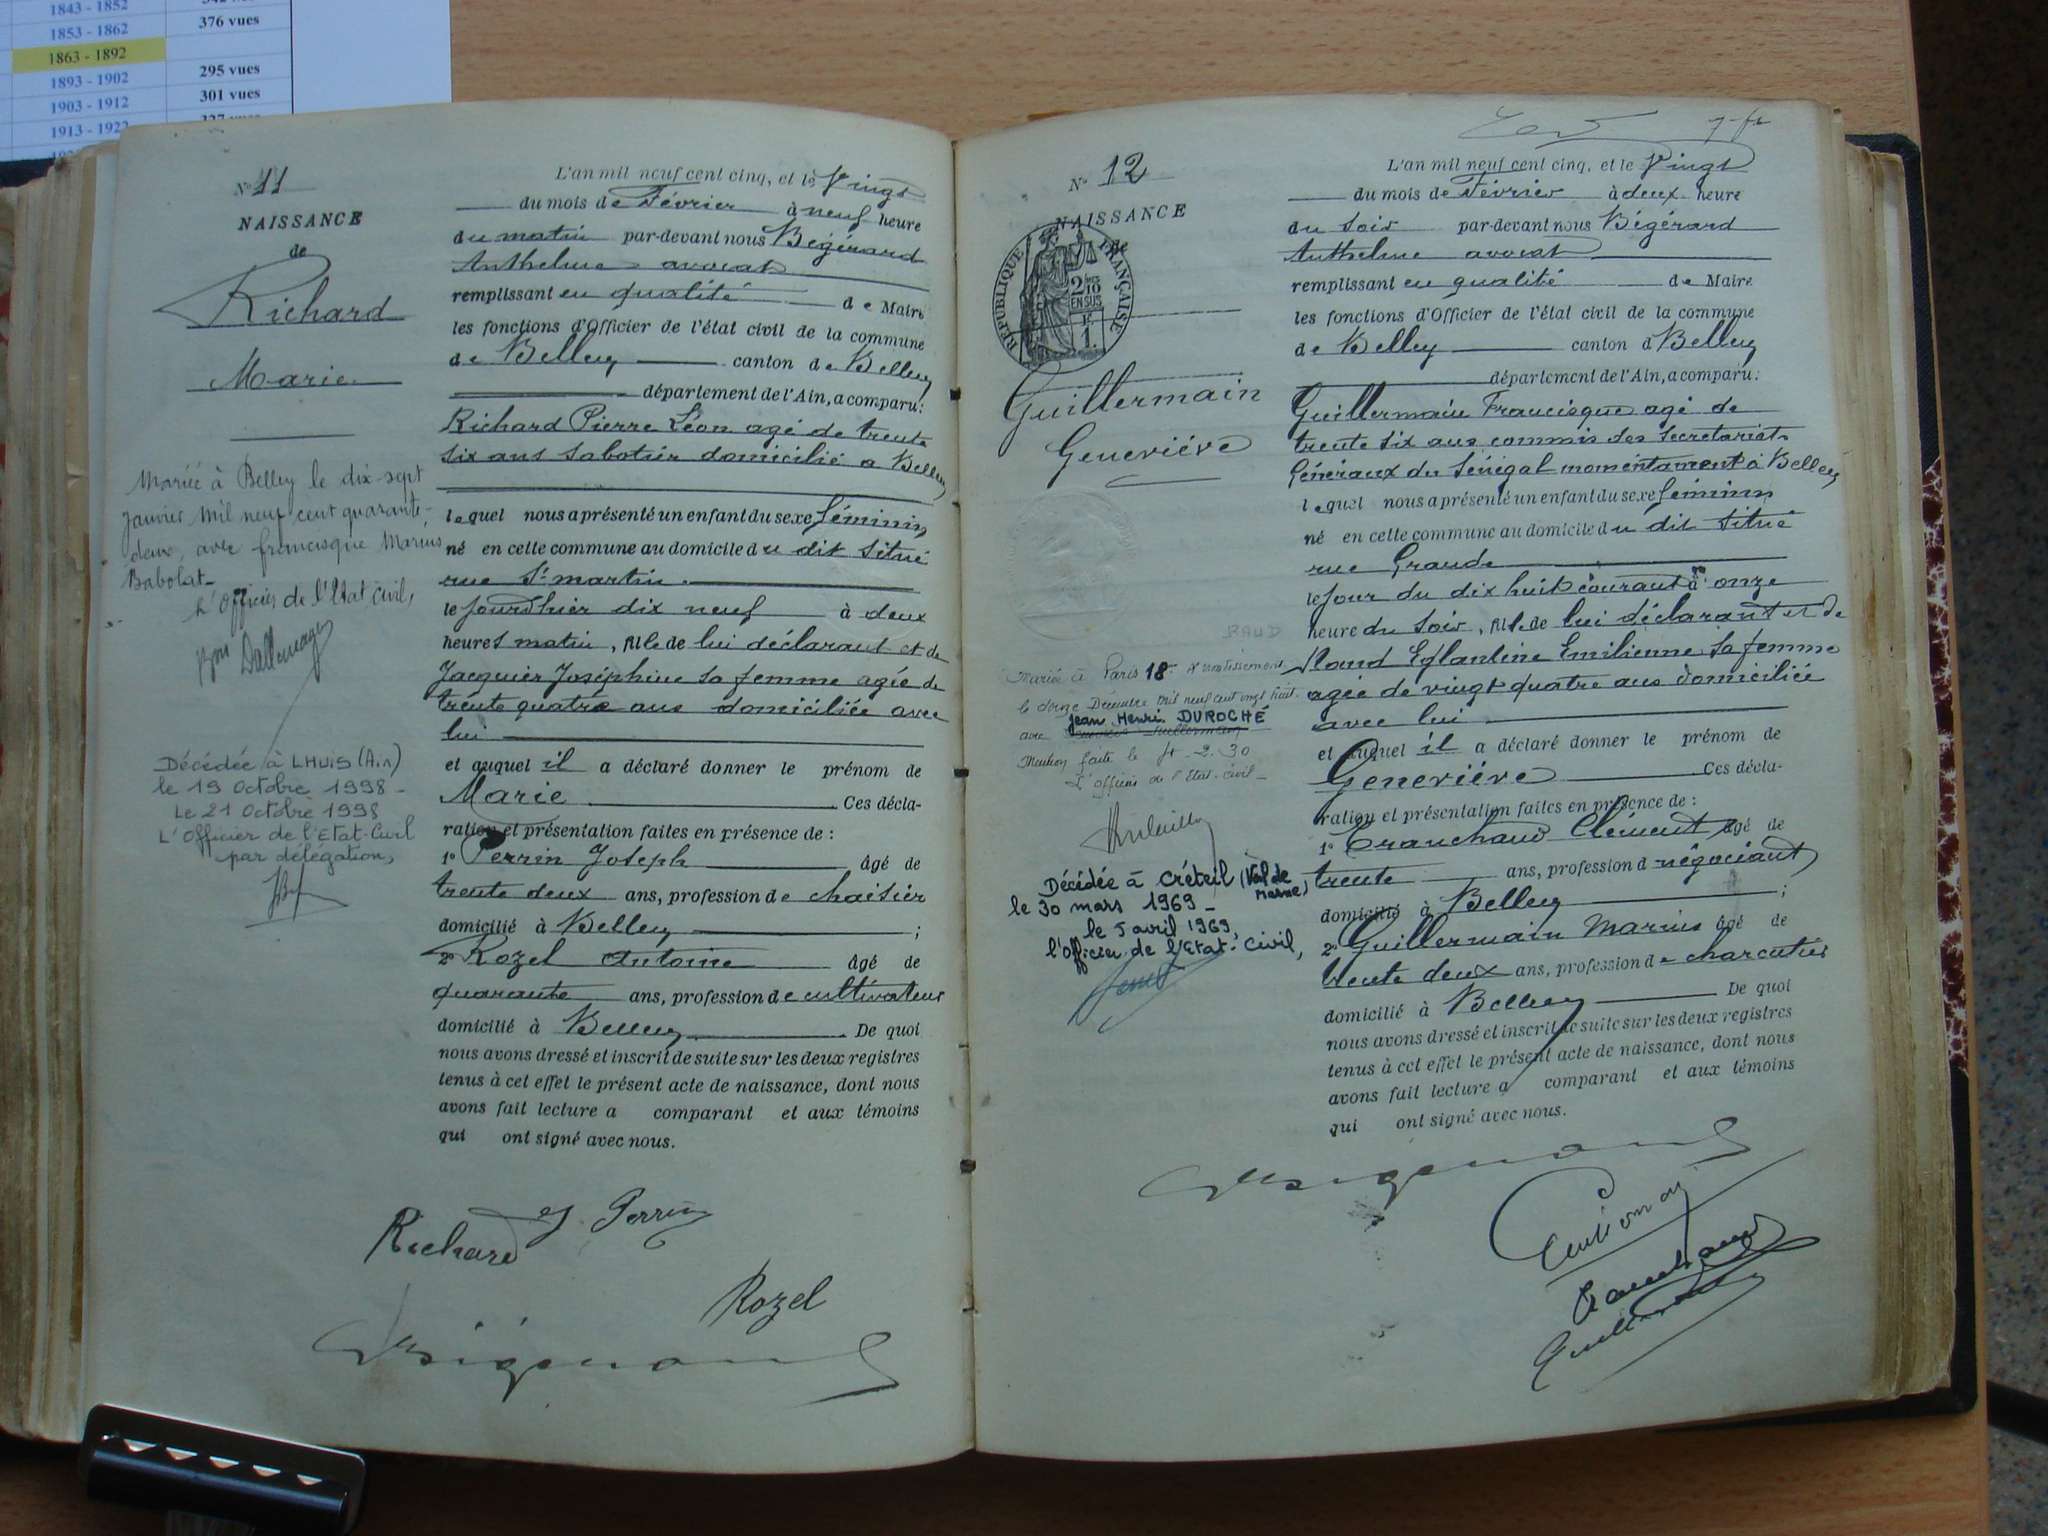 1843 - 1852
1853 - 1862
376 vues
1863 - 1892
1893 - 1902
295 vues
1903 - 1912
301 vues
1913 - 1922
N° 11
NAISSANCE
de
Richard
Marie
Mariée à Belley le dix-sept
janvier mil neuf cent quarante-
deux, avec francisque Marius
Babolat_
L'Officier de l'Etat Civil,
Décédée à LHUIS (Ain)
le 19 Octobre 1998 -
Le 21 Octobre 1998
L'Officier de l'Etat-Civil
par délégation,
L'an mil neuf cent cinq, et le Vingt
du mois de Février à neuf heure
du matin par-devant nous Bégérard
Anthelme avocat
remplissant en qualité de Maire
les fonctions d'Officier de l'état civil de la commune
de Belley canton de Belley
département de l'Ain, a comparu:
Richard Pierre Léon agé de trente
six ans sabotier domicilié a Belley
lequel nous a présenté un enfant du sexe féminin
né en cette commune au domicile du dit situé
rue St martin
le jourdhier dix neuf à deux
heures matin, fille de lui déclarant et de
Jacquier Joséphine sa femme agée de
trente quatre ans domiciliée avec
lui
et auquel il a déclaré donner le prénom de
Marie Ces décla-
ration et présentation faites en présence de :
1° Perrin Joseph âgé de
trente deux ans, profession de chaisier
domicilié à Belley ;
2° Rozel Antoine âgé de
quarante ans, profession de cultivateur
domicilié à Belley De quoi
nous avons dressé et inscrit de suite sur les deux registres
tenus à cet effet le présent acte de naissance, dont nous
avons fait lecture a comparant et aux témoins
qui ont signé avec nous.
Richard J Perrin
Rozel
N° 12
NAISSANCE
de
RÉPUBLIQUE FRANÇAISE
2/10
EN SUS
1
Guillermain
Geneviève
RAUD
Mariée à Paris 18e Arrondissement
le Décembre mil neuf cent vingt huit
Jean Henri DUROCHÉ
avec Guillermain
Mention faite le 2.30
L'officier de l'Etat-civil_
Décédée à Créteil (Val de
Marne)
le 30 mars 1969 -
le 5 avril 1969,
l'Officier de l'Etat-Civil,
L'an mil neuf cent cinq, et le Vingt
du mois de Février à deux heure
du soir par-devant nous Bégérard
Anthelme avocat
remplissant en qualité de Maire
les fonctions d'Officier de l'état civil de la commune
de Belley canton d Belley
département de l'Ain, a comparu:
Guillermain Francisque agé de
trente six ans commis des secretariats
Généraux du Sénégal momentament à Belley
lequel nous a présenté un enfant du sexe féminin
né en cette commune au domicile du dit situé
rue Grande
le jour du dix huit courant à onze
heure du soir, fille de lui déclarant et de
Raud Eglantine Emilienne sa femme
agée de vingt quatre ans domiciliée
avec lui
et auquel il a déclaré donner le prénom de
Geneviève Ces décla-
ration et présentation faites en présence de :
1° Tranchand Clément âgé de
trente ans, profession d négociant
domicilié à Belley ;
2° Guillermain Marius âgé de
trente deux ans, profession de charcutier
domicilié à Belley De quoi
nous avons dressé et inscrit de suite sur les deux registres
tenus à cet effet le présent acte de naissance, dont nous
avons fait lecture a comparant et aux témoins
qui ont signé avec nous.
Tranchand